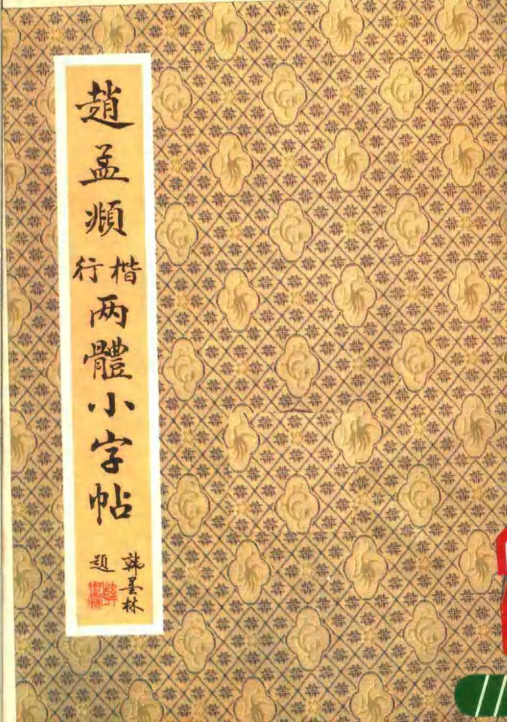 趙孟頫楷行两體小字帖
韩墨林
題